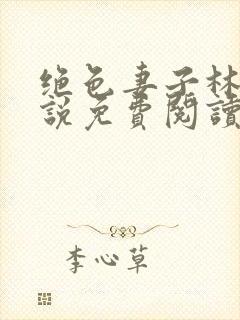 绝色妻子林
說免費閱讀
李心草